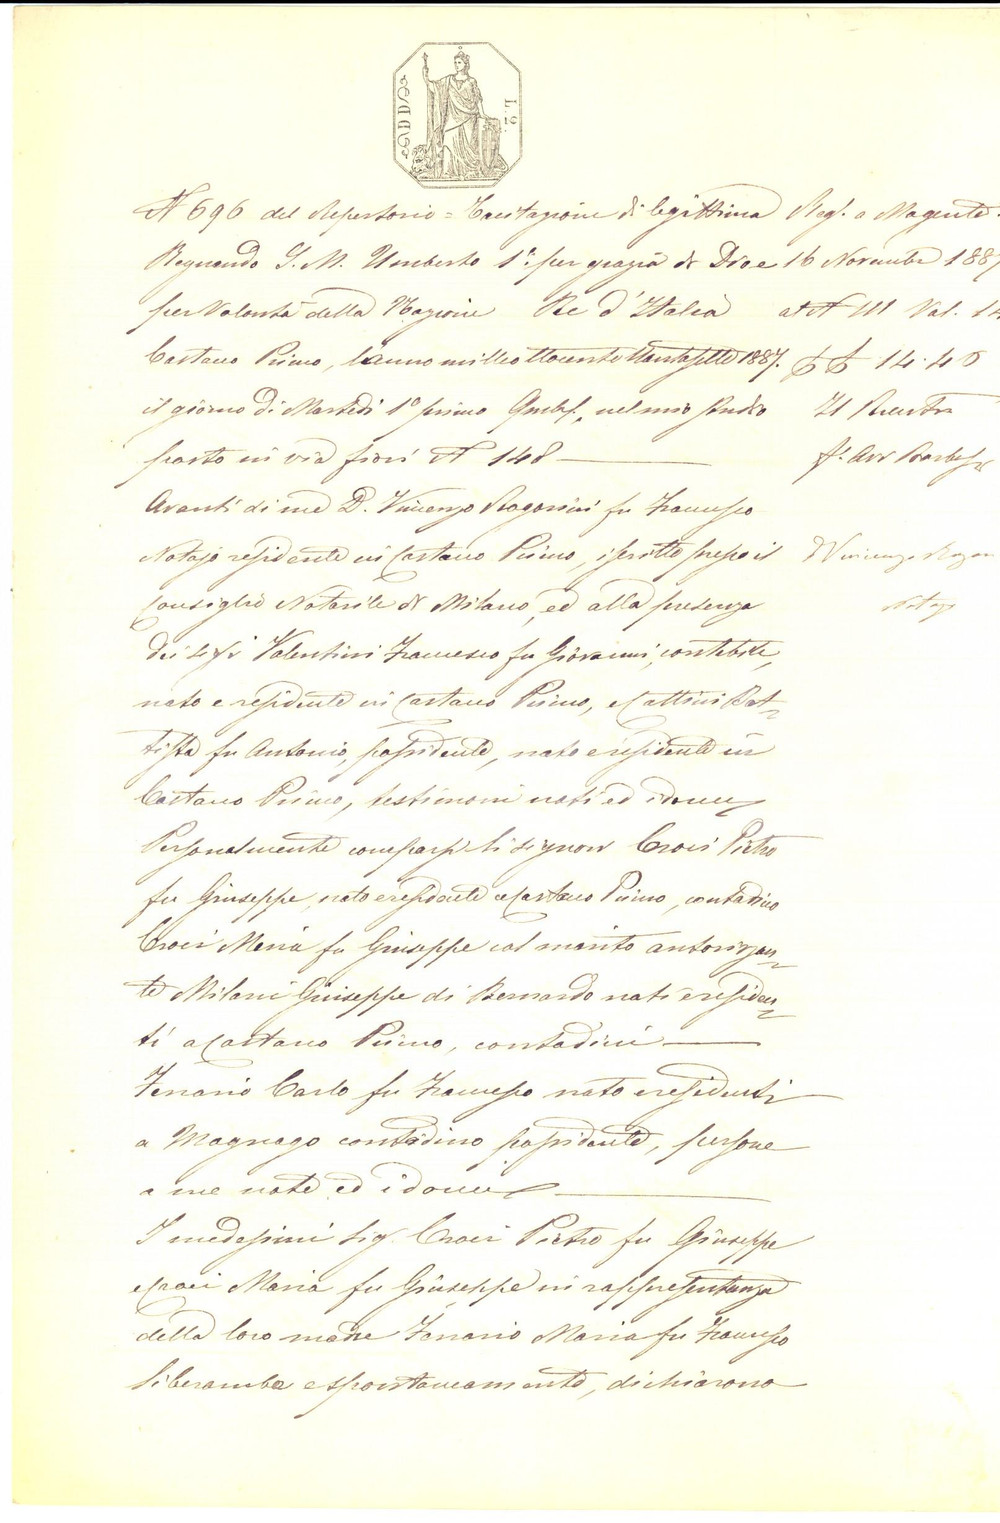 L. 2.
N 696 del Repertorio = Tacitazione di legittima
Regnando S. M. Umberto 1° per grazia di Dio e
per Volontà della Nazione Re d'Italia
Castano Primo, l'anno milleottocentottantasette 1887.
il giorno di Martedì 1° primo 9mbre, nel mio studio
posto in via fiori N 148
Avanti di me D. Vincenzo Ragonini fu Francesco
Notajo residente in Castano Primo, iscritto presso il
Consiglio Notarile di Milano, ed alla presenza
dei Sigri Valentini Francesco fu Giovanni, contabile,
nato e residente in Castano Primo, e Cattini Bat-
tista fu Antonio, possidente, nato e residente in
Castano Primo, testimoni noti ed idonei
Personalmente comparsi li signori Croci Pietro
fu Giuseppe, nato e residente a Castano Primo, contadino
Croci Maria fu Giuseppe col marito autorizzan-
te Milani Giuseppe di Bernardo nati e residen-
ti a Castano Primo, contadini
Ferrario Carlo fu Francesco nato e residenti
a Magnago contadino possidente, persone
a me note ed idonei
I medesimi Sig. Croci Pietro fu Giuseppe
e Croci Maria fu Giuseppe in rappresentanza
della loro madre Ferrario Maria fu Francesco
liberamente e spontaneamente, dichiarono
Reg. a Magenta
16 Novembre 1887
al N 111 Vol. 14
14.40
Il
f.
D Vincenzo
Notajo